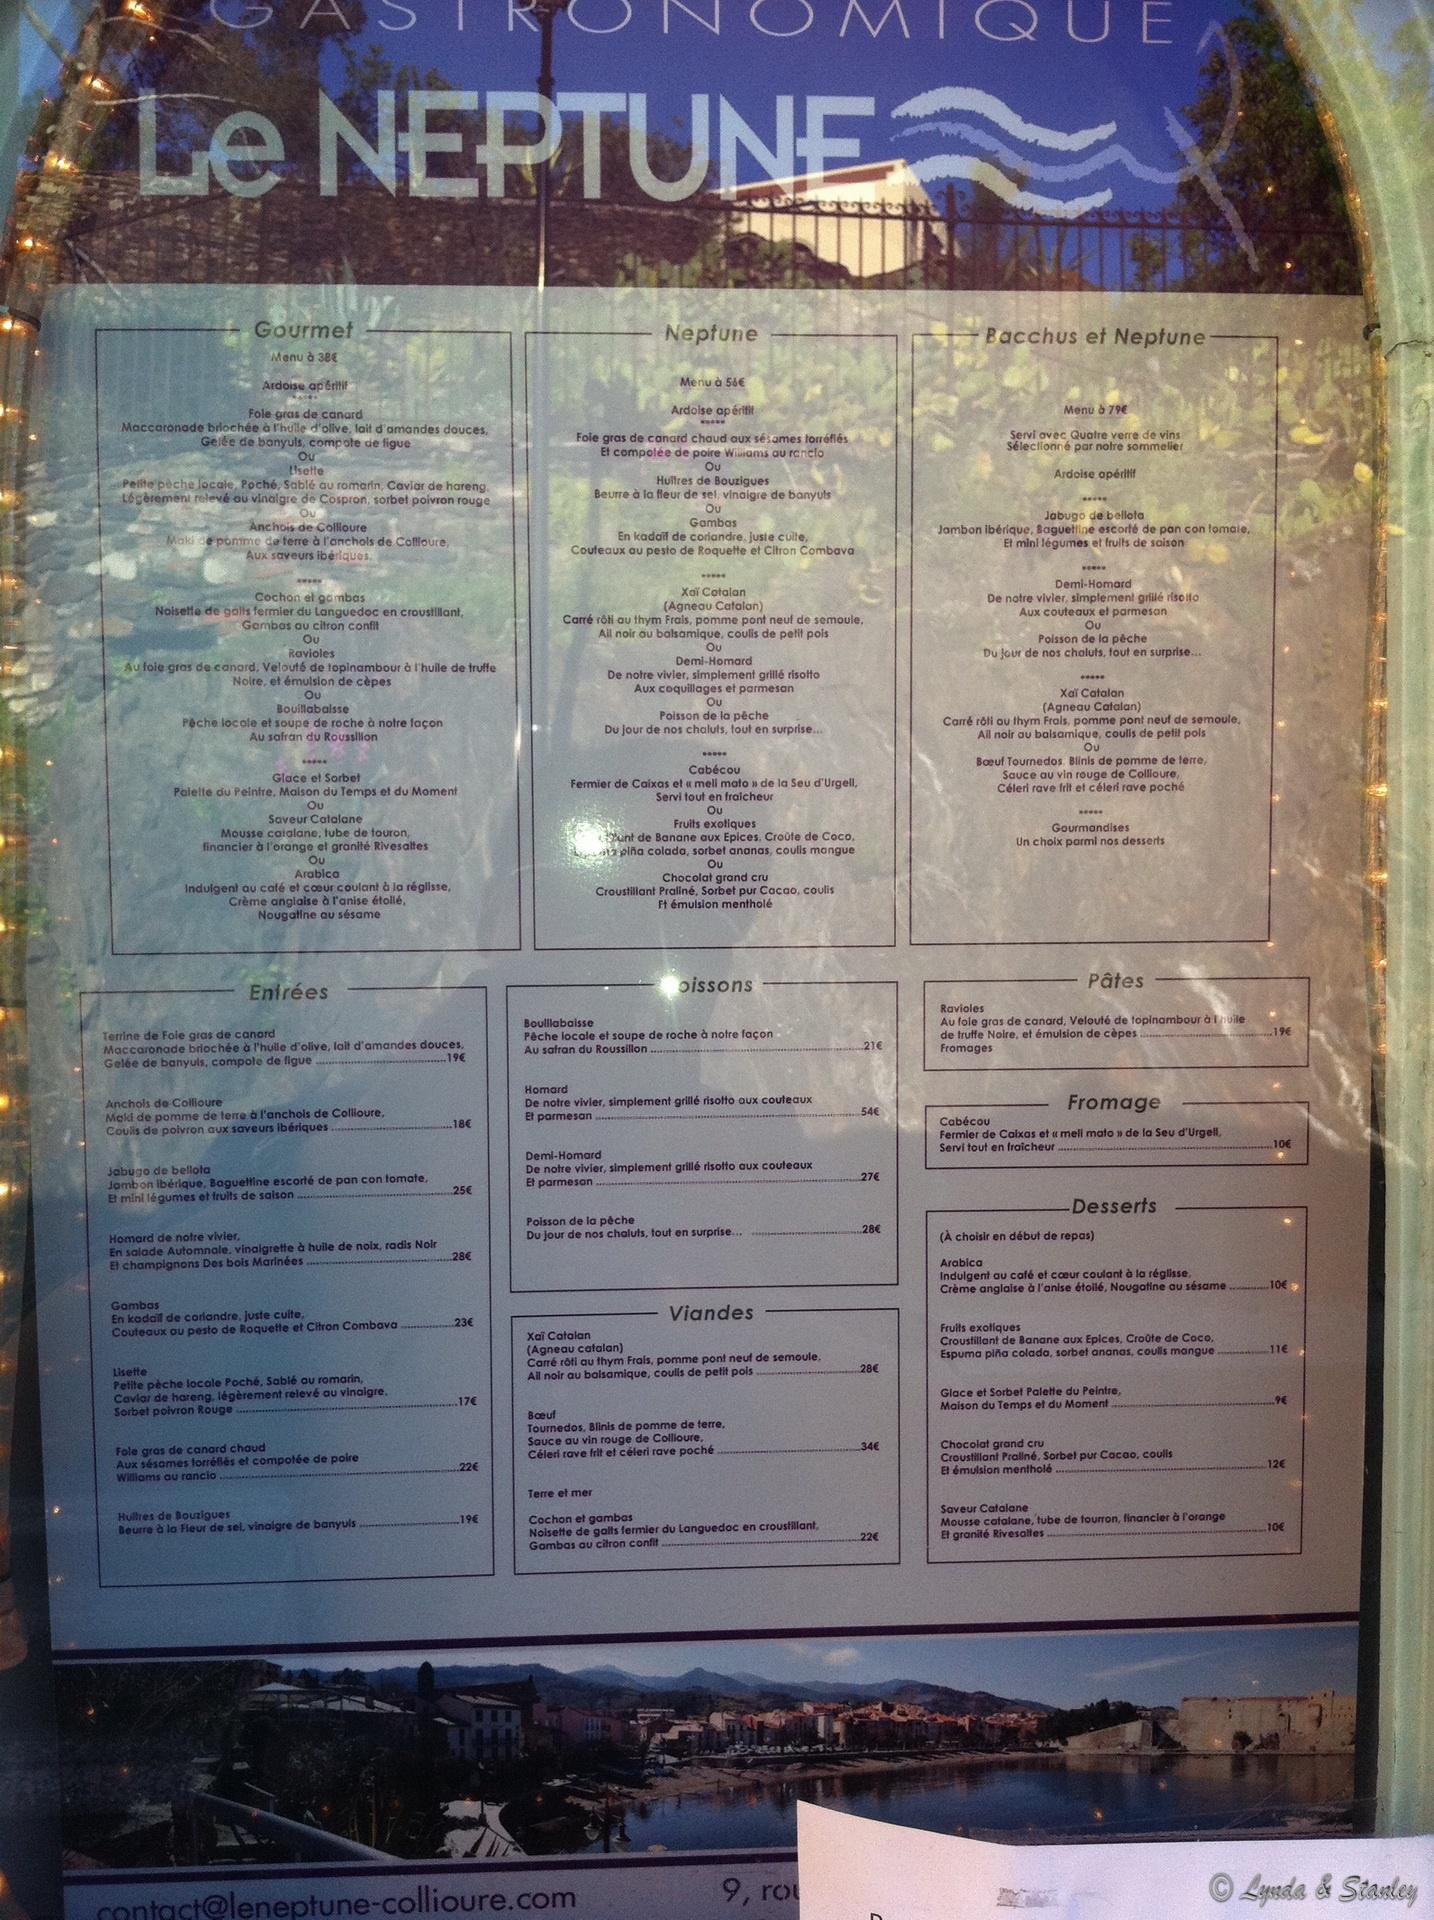 GASTRONOMIQUE
Le NEPTUNE
Gourmet
Menu à 38€
Ardoise apéritif
*****
Foie gras de canard
Maccaronade briochée à l'huile d'olive, lait d'amandes douces,
Gelée de banyuls, compote de figue
Ou
Lisette
Petite pêche locale, Poché, Sablé au romarin, Caviar de hareng,
Légèrement relevé au vinaigre de Cospron, sorbet poivron rouge
Ou
Anchois de Collioure
Maki de pomme de terre à l'anchois de Collioure,
Aux saveurs ibériques.
*****
Cochon et gambas
Noisette de galts fermier du Languedoc en croustillant,
Gambas au citron confit
Ou
Ravioles
Au foie gras de canard, Velouté de topinambour à l'huile de truffe
Noire, et émulsion de cèpes
Ou
Bouillabaisse
Pêche locale et soupe de roche à notre façon
Au safran du Roussillon
*****
Glace et Sorbet
Palette du Peintre, Maison du Temps et du Moment
Ou
Saveur Catalane
Mousse catalane, tube de touron,
financier à l'orange et granité Rivesaltes
Ou
Arabica
Indulgent au café et cœur coulant à la réglisse,
Crème anglaise à l'anise étoilé,
Nougatine au sésame
Neptune
Menu à 56€
Ardoise apéritif
*****
Foie gras de canard chaud aux sésames torréfiés
Et compotée de poire Williams au rancio
Ou
Huîtres de Bouzigues
Beurre à la fleur de sel, vinaigre de banyuls
Ou
Gambas
En kadaïf de coriandre, juste cuite,
Couteaux au pesto de Roquette et Citron Combava
*****
Xaï Catalan
(Agneau Catalan)
Carré rôti au thym Frais, pomme pont neuf de semoule,
Ail noir au balsamique, coulis de petit pois
Ou
Demi-Homard
De notre vivier, simplement grillé risotto
Aux coquillages et parmesan
Ou
Poisson de la pêche
Du jour de nos chaluts, tout en surprise...
*****
Cabécou
Fermier de Caixas et « meli mato » de la Seu d'Urgell,
Servi tout en fraîcheur
Ou
Fruits exotiques
de Banane aux Epices, Croûte de Coco,
piña colada, sorbet ananas, coulis mangue
Ou
Chocolat grand cru
Croustillant Praliné, Sorbet pur Cacao, coulis
Et émulsion mentholé
Bacchus et Neptune
Menu à 79€
Servi avec Quatre verre de vins
Sélectionné par notre sommelier
Ardoise apéritif
*****
Jabugo de bellota
Jambon ibérique, Baguettine escorté de pan con tomate,
Et mini légumes et fruits de saison
*****
Demi-Homard
De notre vivier, simplement grillé risotto
Aux couteaux et parmesan
Ou
Poisson de la pêche
Du jour de nos chaluts, tout en surprise...
*****
Xaï Catalan
(Agneau Catalan)
Carré rôti au thym Frais, pomme pont neuf de semoule,
Ail noir au balsamique, coulis de petit pois
Ou
Bœuf Tournedos, Blinis de pomme de terre,
Sauce au vin rouge de Collioure,
Céleri rave frit et céleri rave poché
*****
Gourmandises
Un choix parmi nos desserts
Entrées
Terrine de Foie gras de canard
Maccaronade briochée à l'huile d'olive, lait d'amandes douces,
Gelée de banyuls, compote de figue ..... 19€
Anchois de Collioure
Maki de pomme de terre à l'anchois de Collioure,
Coulis de poivron aux saveurs ibériques ..... 18€
Jabugo de bellota
Jambon ibérique, Baguettine escorté de pan con tomate,
Et mini légumes et fruits de saison ..... 25€
Homard de notre vivier,
En salade Automnale, vinaigrette à huile de noix, radis Noir
Et champignons Des bois Marinées ..... 28€
Gambas
En kadaïf de coriandre, juste cuite,
Couteaux au pesto de Roquette et Citron Combava ..... 23€
Lisette
Petite pêche locale Poché, Sablé au romarin,
Caviar de hareng, légèrement relevé au vinaigre,
Sorbet poivron Rouge ..... 17€
Foie gras de canard chaud
Aux sésames torréfiés et compotée de poire
Williams au rancio ..... 22€
Huîtres de Bouzigues
Beurre à la Fleur de sel, vinaigre de banyuls ..... 19€
oissons
Bouillabaisse
Pêche locale et soupe de roche à notre façon
Au safran du Roussillon ..... 21€
Homard
De notre vivier, simplement grillé risotto aux couteaux
Et parmesan ..... 54€
Demi-Homard
De notre vivier, simplement grillé risotto aux couteaux
Et parmesan ..... 27€
Poisson de la pêche
Du jour de nos chaluts, tout en surprise... ..... 28€
Viandes
Xaï Catalan
(Agneau catalan)
Carré rôti au thym Frais, pomme pont neuf de semoule,
Ail noir au balsamique, coulis de petit pois ..... 28€
Bœuf
Tournedos, Blinis de pomme de terre,
Sauce au vin rouge de Collioure,
Céleri rave frit et céleri rave poché ..... 34€
Terre et mer
Cochon et gambas
Noisette de galts fermier du Languedoc en croustillant,
Gambas au citron confit ..... 22€
Pâtes
Ravioles
Au foie gras de canard, Velouté de topinambour à l'huile
de truffe Noire, et émulsion de cèpes ..... 19€
Fromages
Fromage
Cabécou
Fermier de Caixas et « meli mato » de la Seu d'Urgell,
Servi tout en fraîcheur ..... 10€
Desserts
(À choisir en début de repas)
Arabica
Indulgent au café et cœur coulant à la réglisse,
Crème anglaise à l'anise étoilé, Nougatine au sésame ..... 10€
Fruits exotiques
Croustillant de Banane aux Epices, Croûte de Coco,
Espuma piña colada, sorbet ananas, coulis mangue ..... 11€
Glace et Sorbet Palette du Peintre,
Maison du Temps et du Moment ..... 9€
Chocolat grand cru
Croustillant Praliné, Sorbet pur Cacao, coulis
Et émulsion mentholé ..... 12€
Saveur Catalane
Mousse catalane, tube de tourron, financier à l'orange
Et granité Rivesaltes ..... 10€
contact@leneptune-collioure.com
9, rou
© Lynda & Stanley